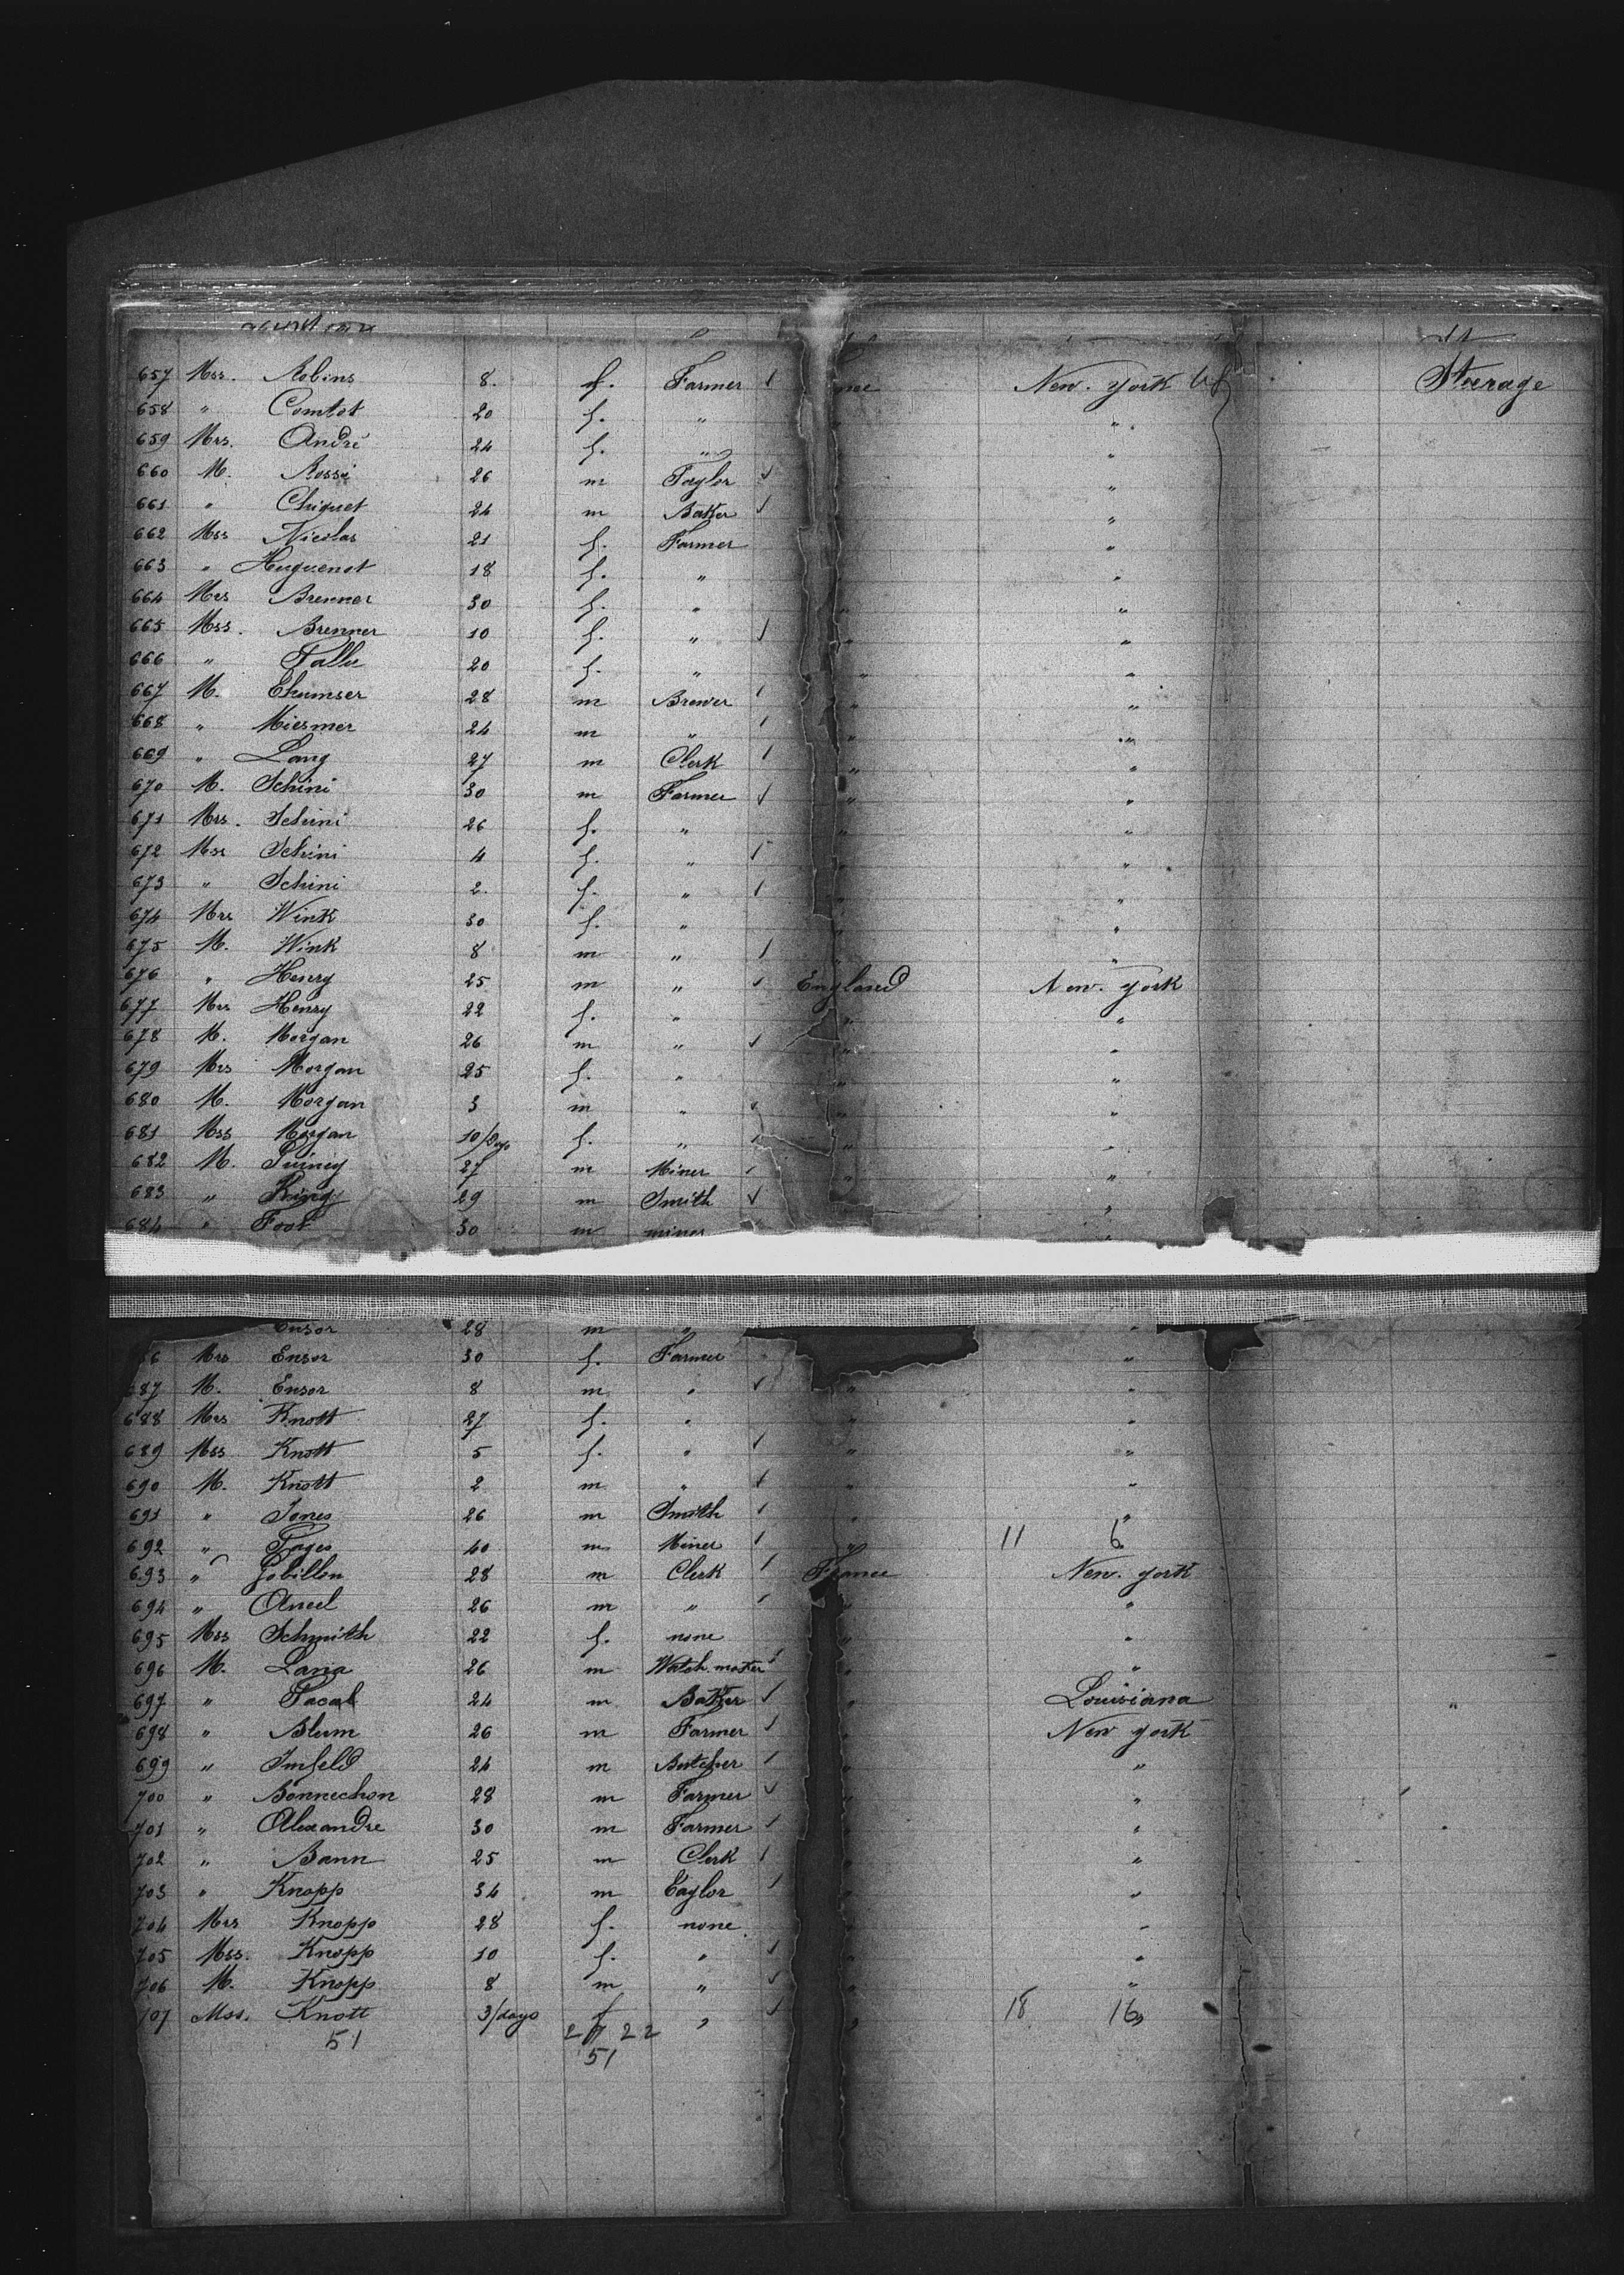 657 Mss. Robins 8. f. Farmer New. York Steerage
658 " Comtet 20 f. " "
659 Mrs. André 24 f. " "
660 M. Rossi 26 m Taylor "
661 " Chiquet 24 m Baker "
662 Mss Nicolas 21 f. Farmer "
663 " Huguenot 18 f. " "
664 Mrs Brenner 30 f. " " "
665 Mss. Brenner 10 f. " " "
666 " 20 f. " " "
667 M. 28 m Brewer " "
668 " Miesmer 24 m " " "
669 " Lang 27 m Clerk " "
670 M. Schini 30 m Farmer " "
671 Mrs. Schini 26 f. " " "
672 Mss Schini 4 f. " " "
673 " Schini 2. f. " " "
674 Mrs Wink 30 f. " " "
675 M. Wink 8 m " " "
676 " Henry 25 m " England New. York
677 Mrs Henry 22 f. " " "
678 M. Morgan 26 m " " "
679 Mrs Morgan 25 f. " " "
680 M. Morgan 3 m " " "
681 Mss Morgan 10/Days f. " " "
682 M. 27 m Miner " "
683 " King 29 m Smith "
684 " Foot 30 m miner "
Ensor 28 m " "
86 Mrs Ensor 30 f. Farmer "
687 M. Ensor 8 m " " "
688 Mrs Knott 27 f. " " "
689 Mss Knott 5 f. " " "
690 M. Knott 2 m " "
691 " Jones 26 m Smith " "
692 " Pages 40 m Miner " 11 6
693 " Gobillon 28 m Clerk France New. York
694 " Ancel 26 m " " "
695 Mss Schmith 22 f. none " "
696 M. Laria 26 m Watch maker " "
697 " Pacal 24 m Baker " Louisiana "
698 " Blum 26 m Farmer New York
699 " Imfeld 24 m Butcher " "
700 " Bonnechon 28 m Farmer " "
701 " Alexandre 30 m Farmer " "
702 " Bann 25 m Clerk " "
703 " Knopp 34 m Taylor " "
704 Mrs Knopp 28 f. none " "
705 Mss. Knopp 10 f. " " "
706 M. Knopp 8 m " " "
707 Mss. Knott 3/days f " " 18 16
51 22
51